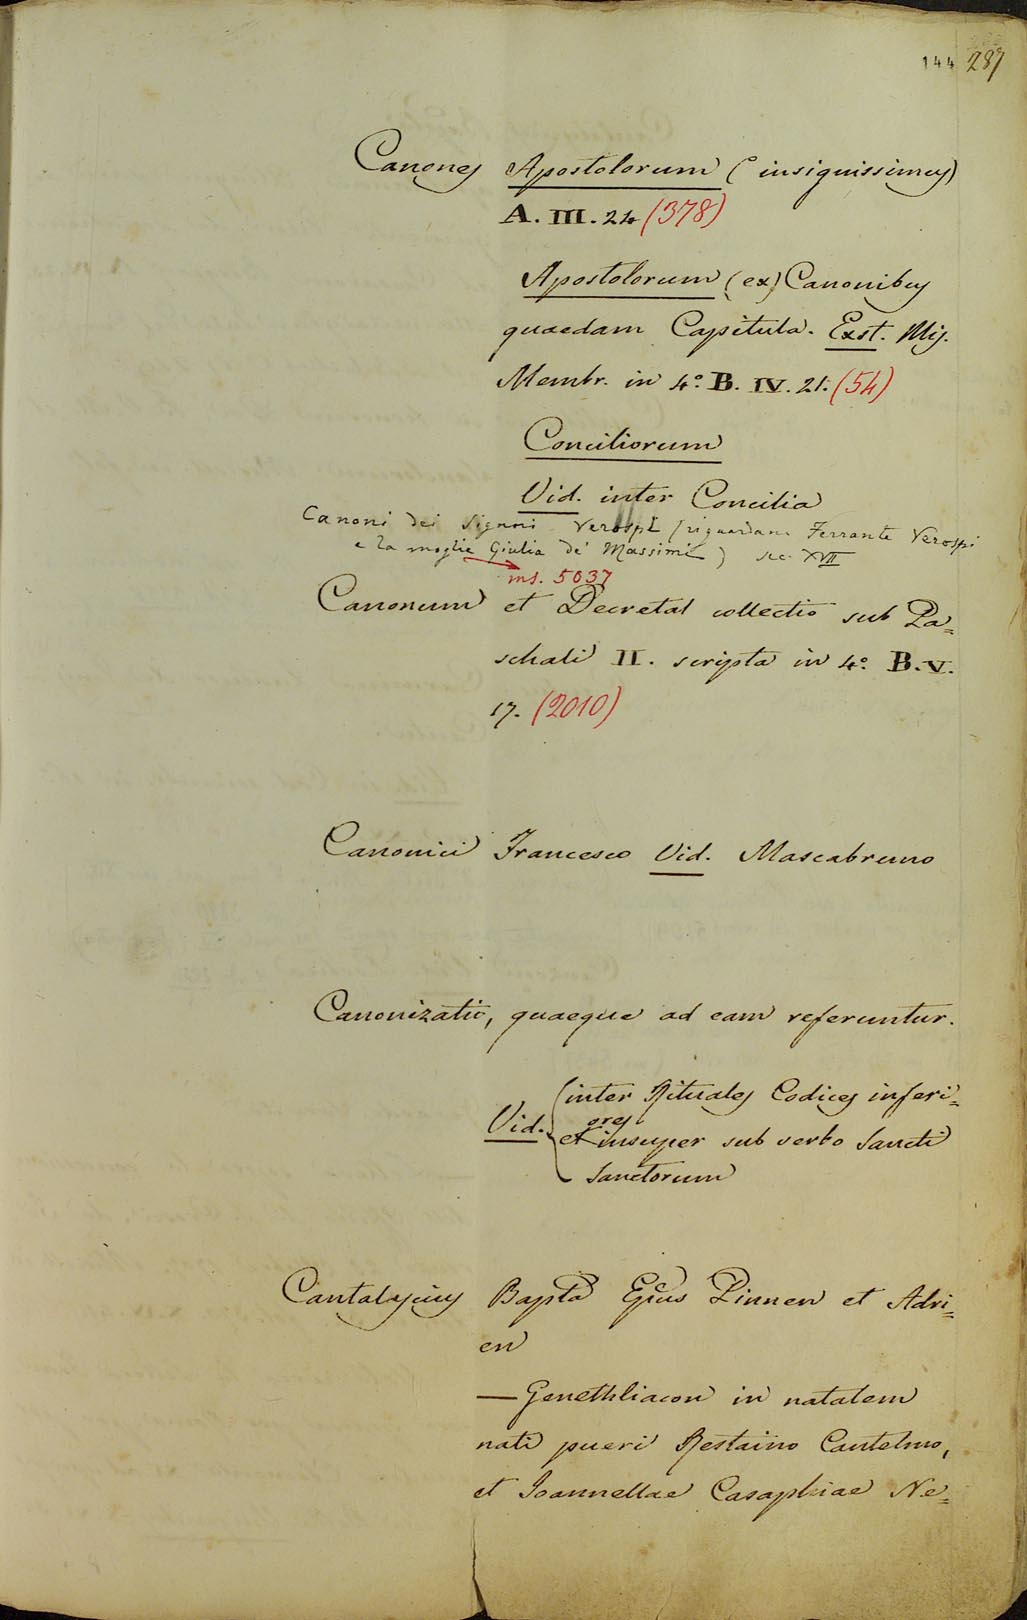 144 287
Canones Apostolorum (insignissimus)
A. III. 24 (378)
Apostolorum (ex) Canonibus
quaedam Capitula. Exst. Ms.
Membr. in 4º. B. IV. 21. (54)
Conciliorum
Vid. inter Concilia
Canoni dei Signori Verospi (riguardano Ferrante Verospi
e la moglie Giulia de' Massimi) sec. XVII
ms. 5037
Canonum et Decretal collectio sub Pa=
schali II. scripta in 4º. B. V.
17. (2010)
Canonici Francesco Vid. Mascabruno
Canonizatio, quaeque ad eam referuntur.
inter Rituales Codices inferi=
ores
Vid. et insuper sub verbo Sancti
Sanctorum
Cantalycius Bapta Epus Pinnen et Adri=
en
— Genethliacon in natalem
nati pueri Restaino Cantelmo,
et Joannellae Casaphiae Ne=